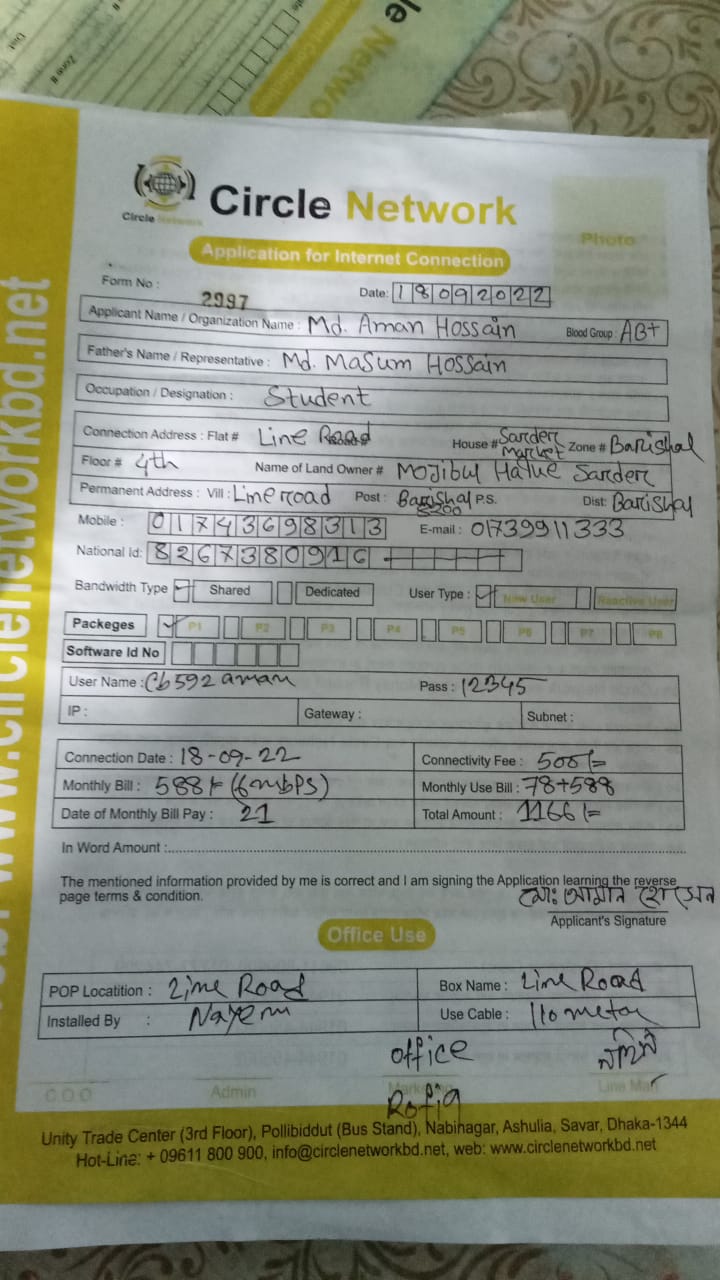 le Network
Circle Network
Circle Network
Application for Internet Connection
Photo
Form No : 2997 Date: 18092022
Applicant Name / Organization Name : Md. Aman Hossain Blood Group : AB+
Father's Name / Representative : Md. Masum Hossain
Occupation / Designation : Student
Connection Address : Flat # Line Road House # Sarder Market Zone # Barishal
Floor # 4th Name of Land Owner # Mojibul Haque Sarder
Permanent Address : Vill : Line road Post : Barishal 8200 P.S. Dist: Barishal
Mobile : 01743698313 E-mail : 01739911333
National Id: 8267380916
Bandwidth Type Shared Dedicated User Type : New User Reactive User
Packeges P1 P2 P3 P4 P5 P6 P7 P8
Software Id No
User Name : Cb592aman Pass : 12345
IP : Gateway : Subnet :
Connection Date : 18-09-22 Connectivity Fee : 500/=
Monthly Bill : 588/= (6mbps) Monthly Use Bill : 78+588
Date of Monthly Bill Pay : 21 Total Amount : 1166/=
In Word Amount :
The mentioned information provided by me is correct and I am signing the Application learning the reverse
page terms & condition. মোঃ আমান হোসেন
Applicant's Signature
Office Use
POP Locatition : Line Road Box Name : Line Road
Installed By : Nayem Use Cable : 110 meter
office
C.O.O Admin Line Man
Rofiq
Unity Trade Center (3rd Floor), Pollibiddut (Bus Stand), Nabinagar, Ashulia, Savar, Dhaka-1344
Hot-Line: + 09611 800 900, info@circlenetworkbd.net, web: www.circlenetworkbd.net
www.circlenetworkbd.net